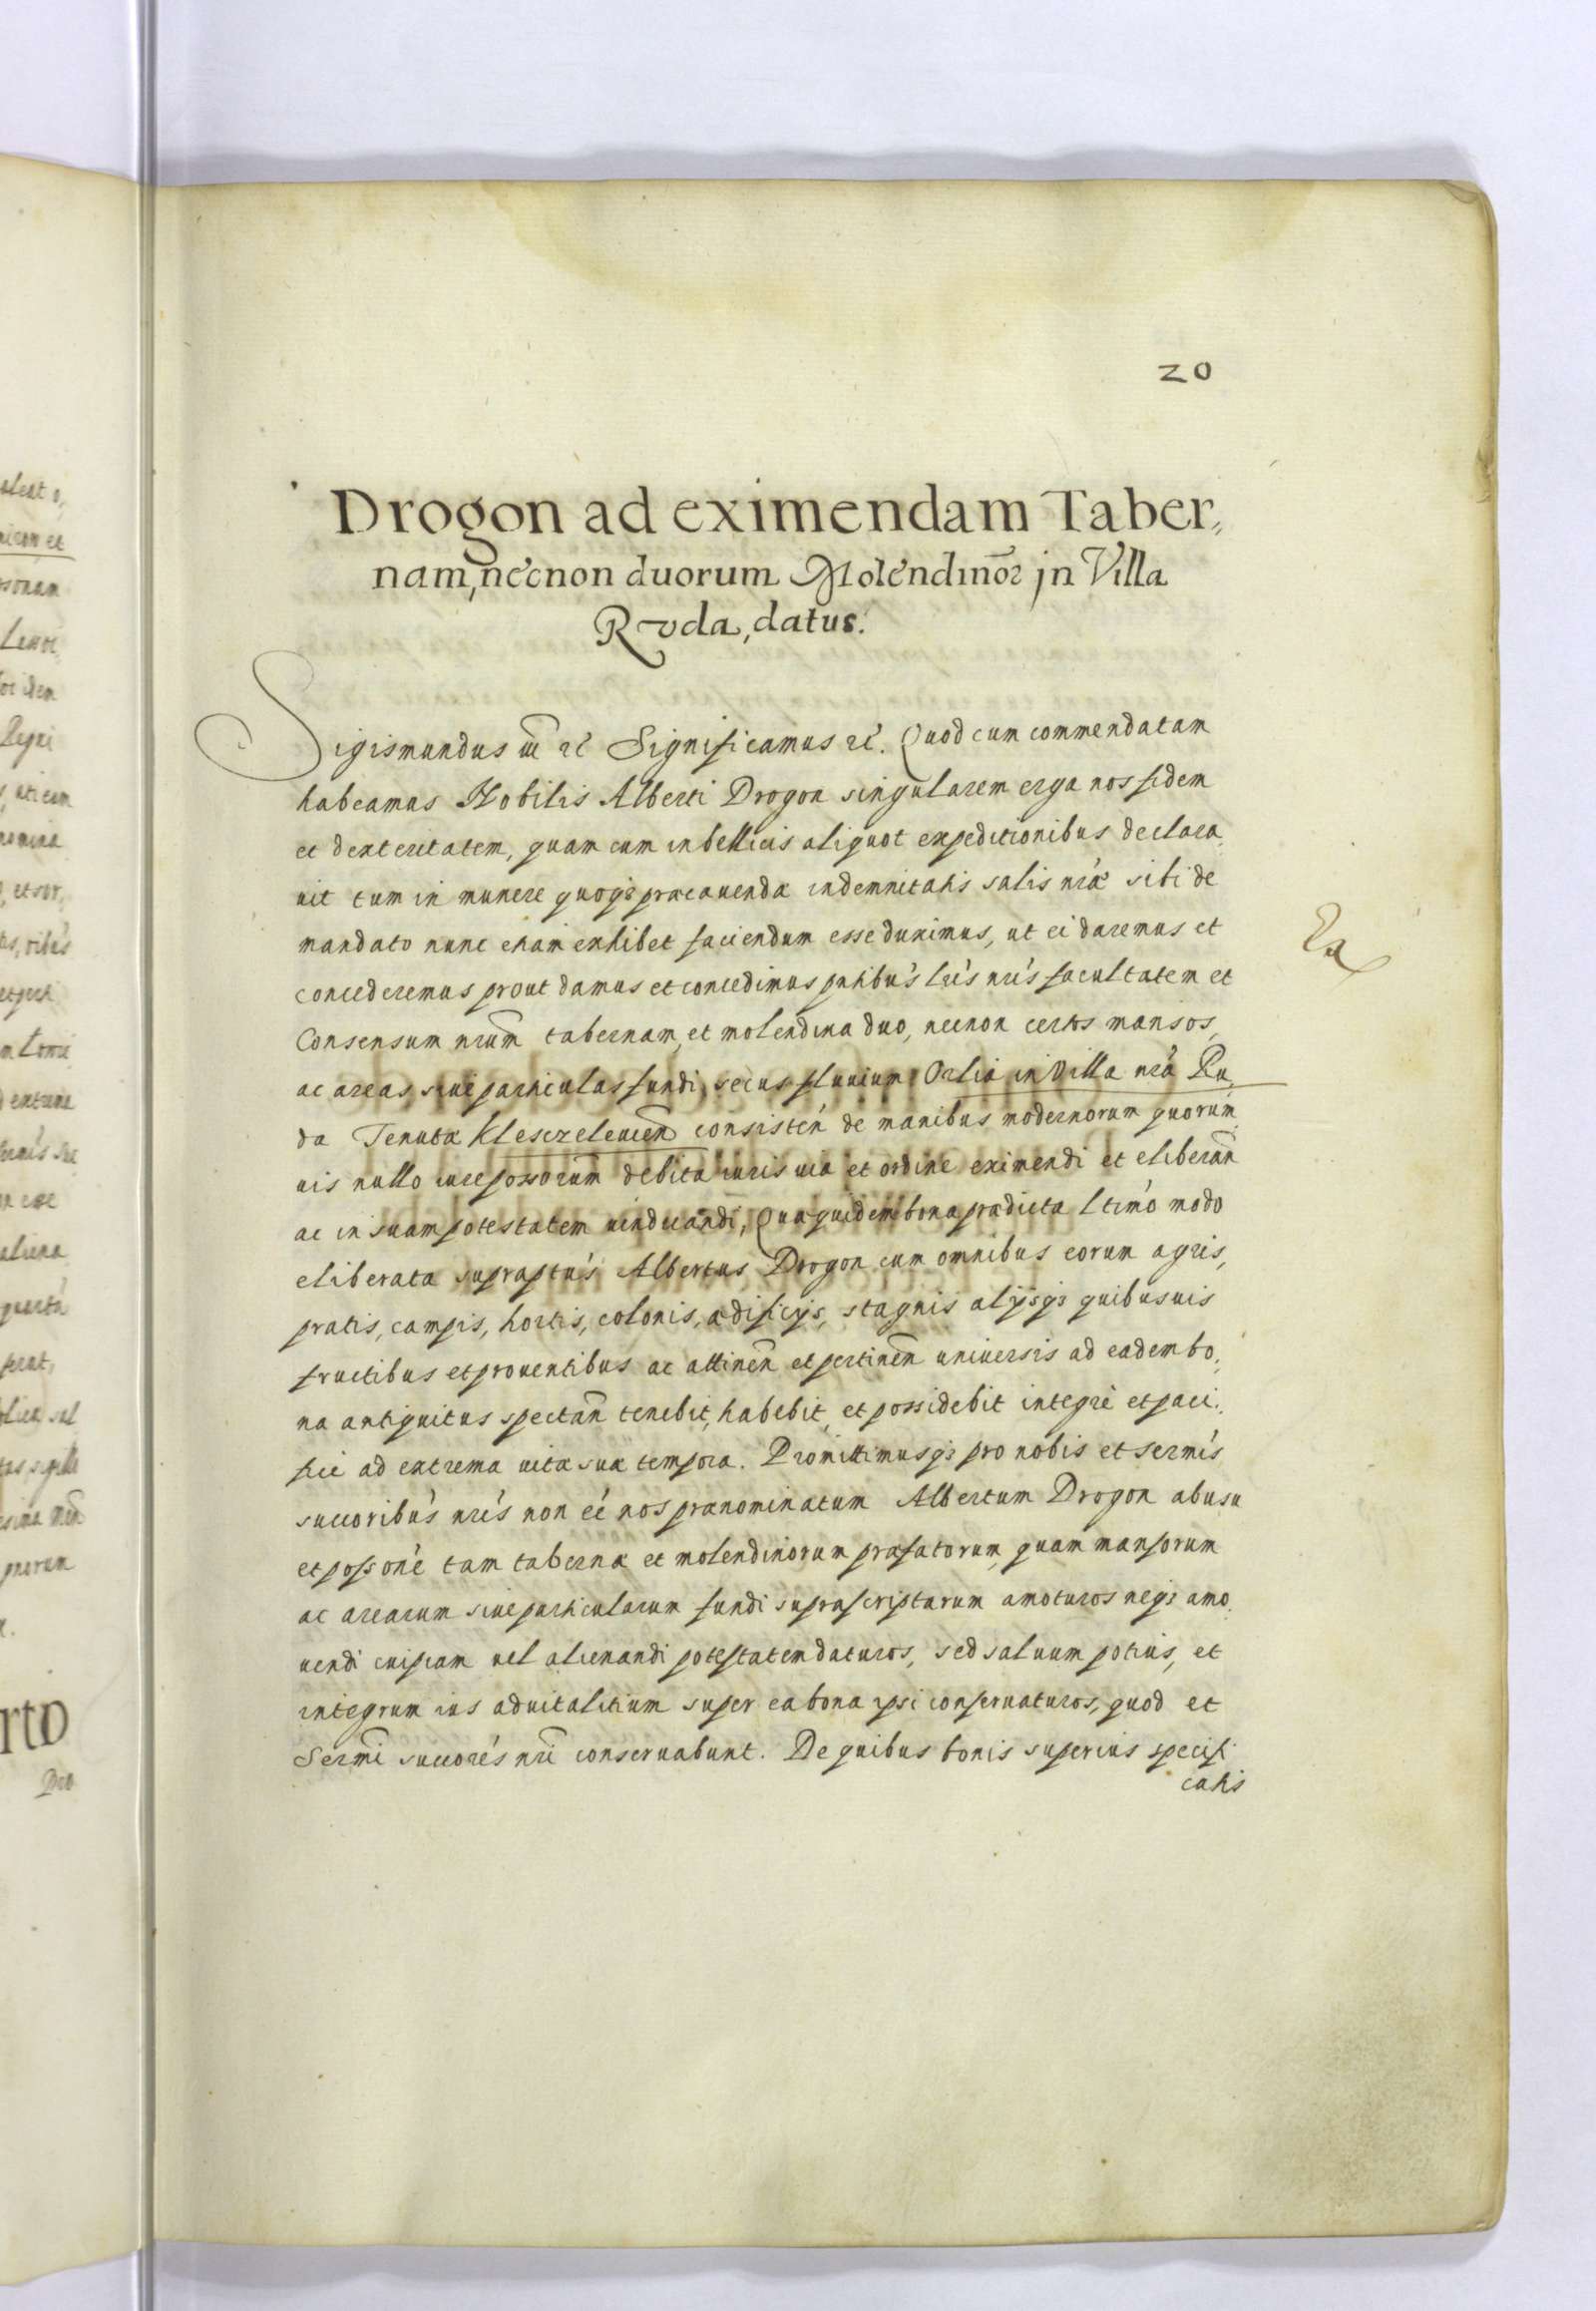 20
Drogon ad eximendam Taber,,
nam, necnon duorum Molendinor̄ in Villa
Rvda, datus.
Sigismundus iii̅ ꝛc̄ Significamus ꝛc̄. Quod cum commendatam
habeamus Nobilis Alberti Drogon singularem erga nos fidem
et dexteritatem, quam cum in bellicis aliquot expeditionibus declara,
uit tum in munere quoqꝫ praecauendae indemnitatis salis nr̄ae sibi de
mandato nunc etiam exhibet faciendum esse duximus, ut ei daremus et
concederemus prout damus et concedimus pn̄tibus lr̄is nr̄is facultatem et
Consensum nrum̄ tabernam, et molendina duo, necnon certos mansos,
ac areas siue particulas fundi, secus fluuium Orlia in Villa nr̄a Ru,
da Tenutae Klesczeleuien̄ consisten̄ de manibus modernorum quorum,
uis nullo iure possorum̄ debita iuris uia et ordine eximendi et eliberan̄
ac in suam potestatem uindicandi, Quae quidem bona praedicta ltimō modo
eliberata supraptūs Albertus Drogon cum omnibus eorum agris,
pratis, campis, hortis, colonis, aedificijs, stagnis alijsqꝫ quibusuis
fructibus et prouentibus ac attinen̄ et pertinen̄ uniuersis ad eadem bo,
na antiquitus spectan̄ tenebit, habebit, et possidebit integrè et paci,
fice ad extrema uitae suae tempora. Promittimusqꝫ pro nobis et sermīs
succoribūs nr̄is non eē nos praenominatum Albertum Drogon ab usu
et possonē tam tabernae et molendinorum praefatorum, quam mansorum
ac arearum siue particularum fundi suprascriptarum amoturos neqꝫ amo,
uendi cuipiam uel alienandi potestatem daturos, sed saluum potius, et
integrum ius aduitalitium super ea bona ipsi conseruaturos, quod et
Sermī succorēs nr̄i conseruabunt. De quibus bonis superius specifi
catis